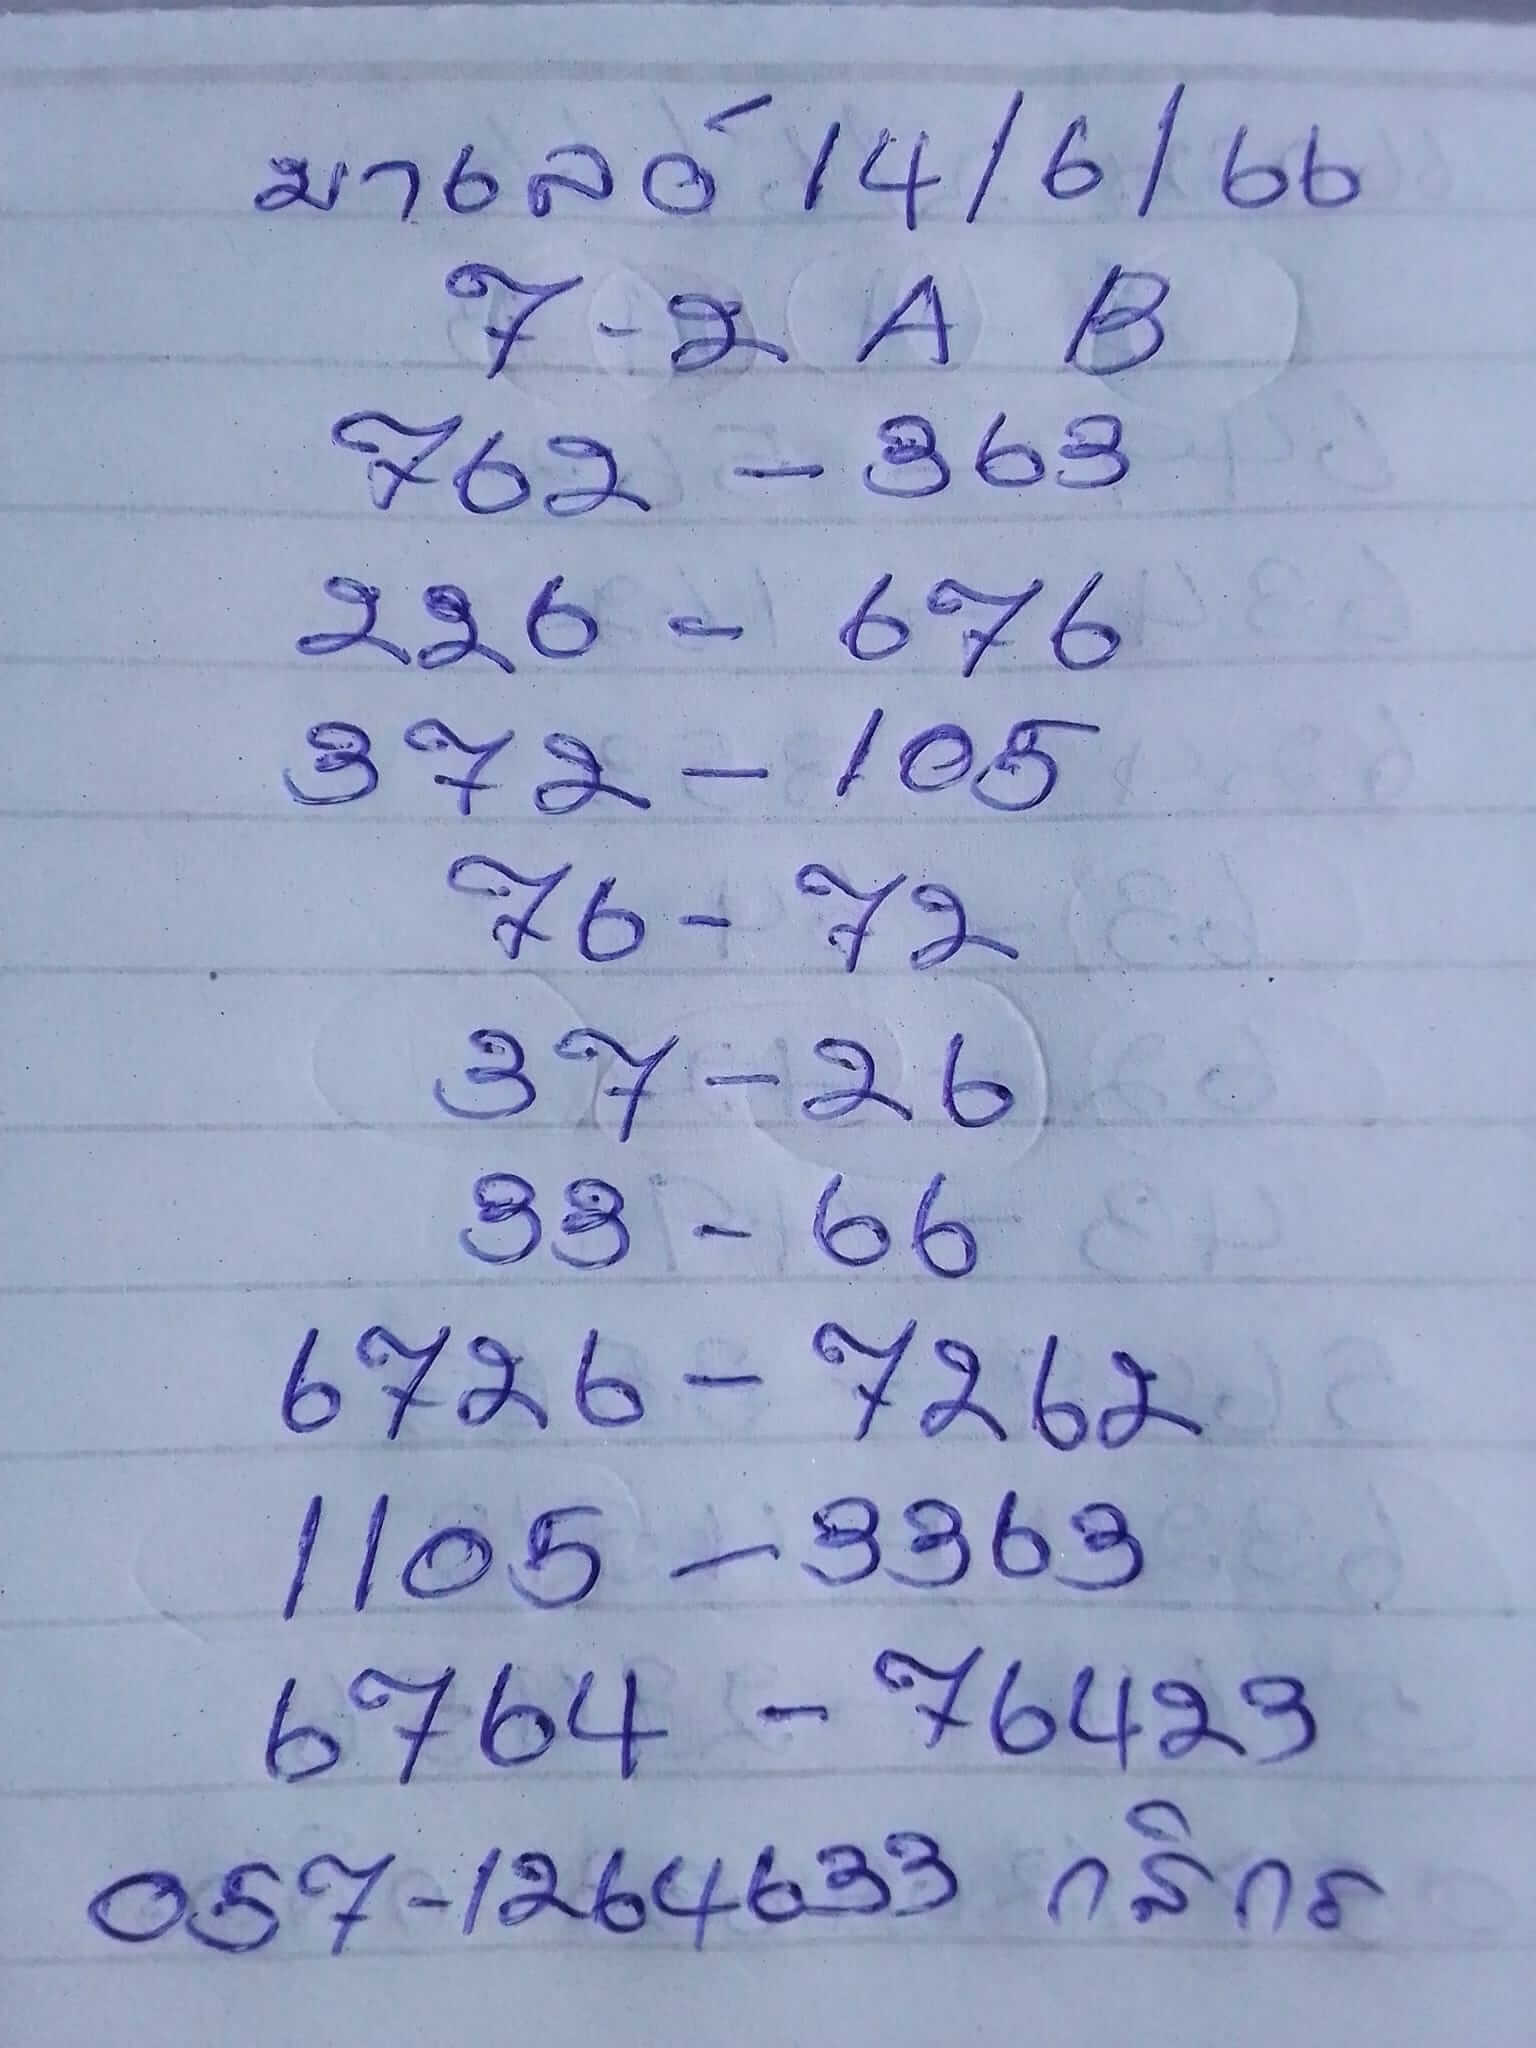 มาเลย์ 14/6/66
7-2 A B
762 - 363
226 - 676
372 - 105
76 - 72
37 - 26
33 - 66
6726 - 7262
1105 - 3363
6764 - 76423
057-1264633 กสิกร